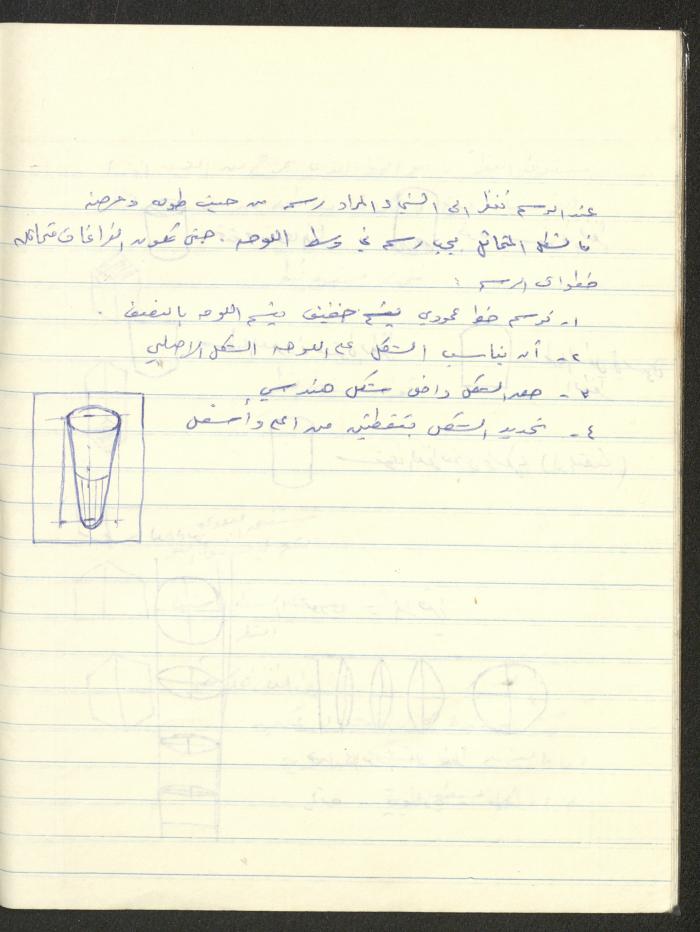 عند الرسم ننظر الى الشيء المراد رسمه من حيث طوله وعرضه
فالشكل المتماثل يجب رسمه في وسط اللوحه . حتى تكون الفراغات متماثله
خطوات الرسم :
١- نرسم خط عمودي خفيف يقسم اللوحه بالنصف .
٢- أن يتناسب الشكل على اللوحه الشكل الاصلي
٣- حصر الشكل داخل شكل هندسي
٤- تحديد الشكل بنقطتين من اعلى وأسفل